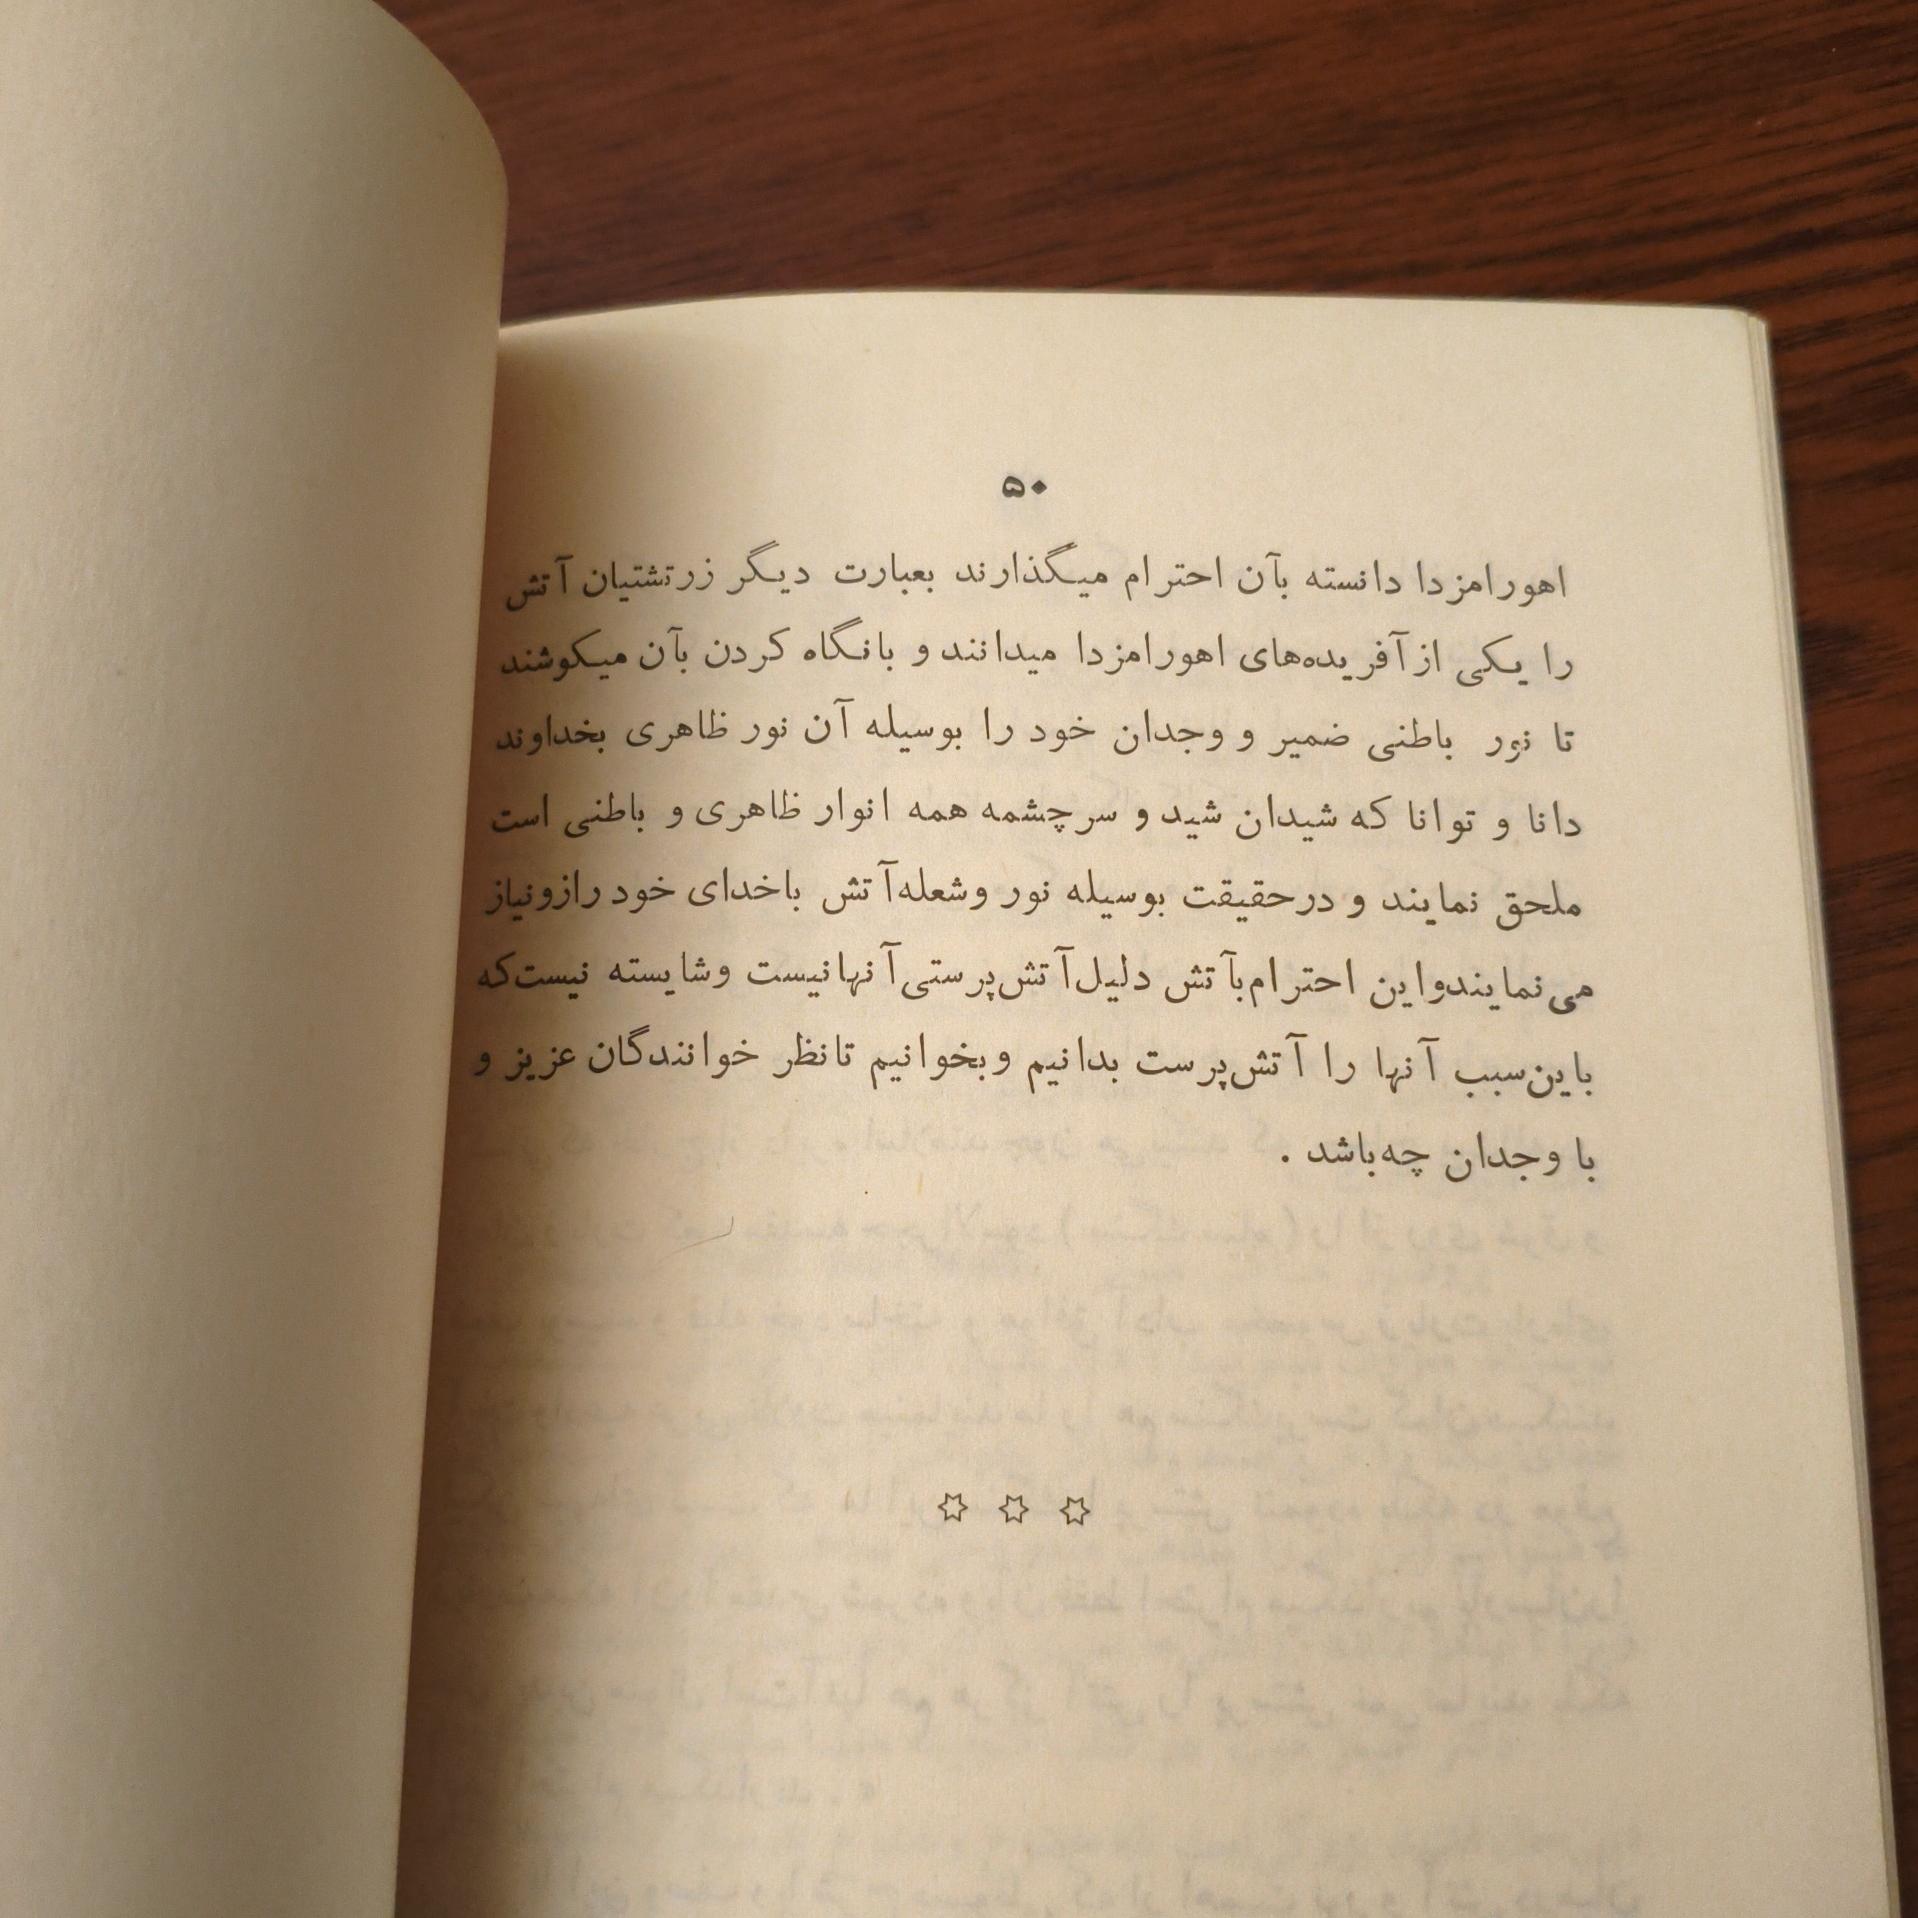 ۵۰
اهورامزدا دانسته بآن احترام میگذارند بعبارت دیگر زرتشتیان آتش
را یکی از آفریده‌های اهورامزدا میدانند و بانگاه کردن بآن میکوشند
تا نور باطنی ضمیر و وجدان خود را بوسیله آن نور ظاهری بخداوند
دانا و توانا که شیدان شید و سرچشمه همه انوار ظاهری و باطنی است
ملحق نمایند و درحقیقت بوسیله نور وشعله آتش باخدای خود رازونیاز
می‌نمایندواین احترام بآتش دلیل آتش‌پرستی آنهانیست وشایسته نیست‌که
باین‌سبب آنها را آتش‌پرست بدانیم وبخوانیم تانظر خوانندگان عزیز و
با وجدان چه‌باشد .